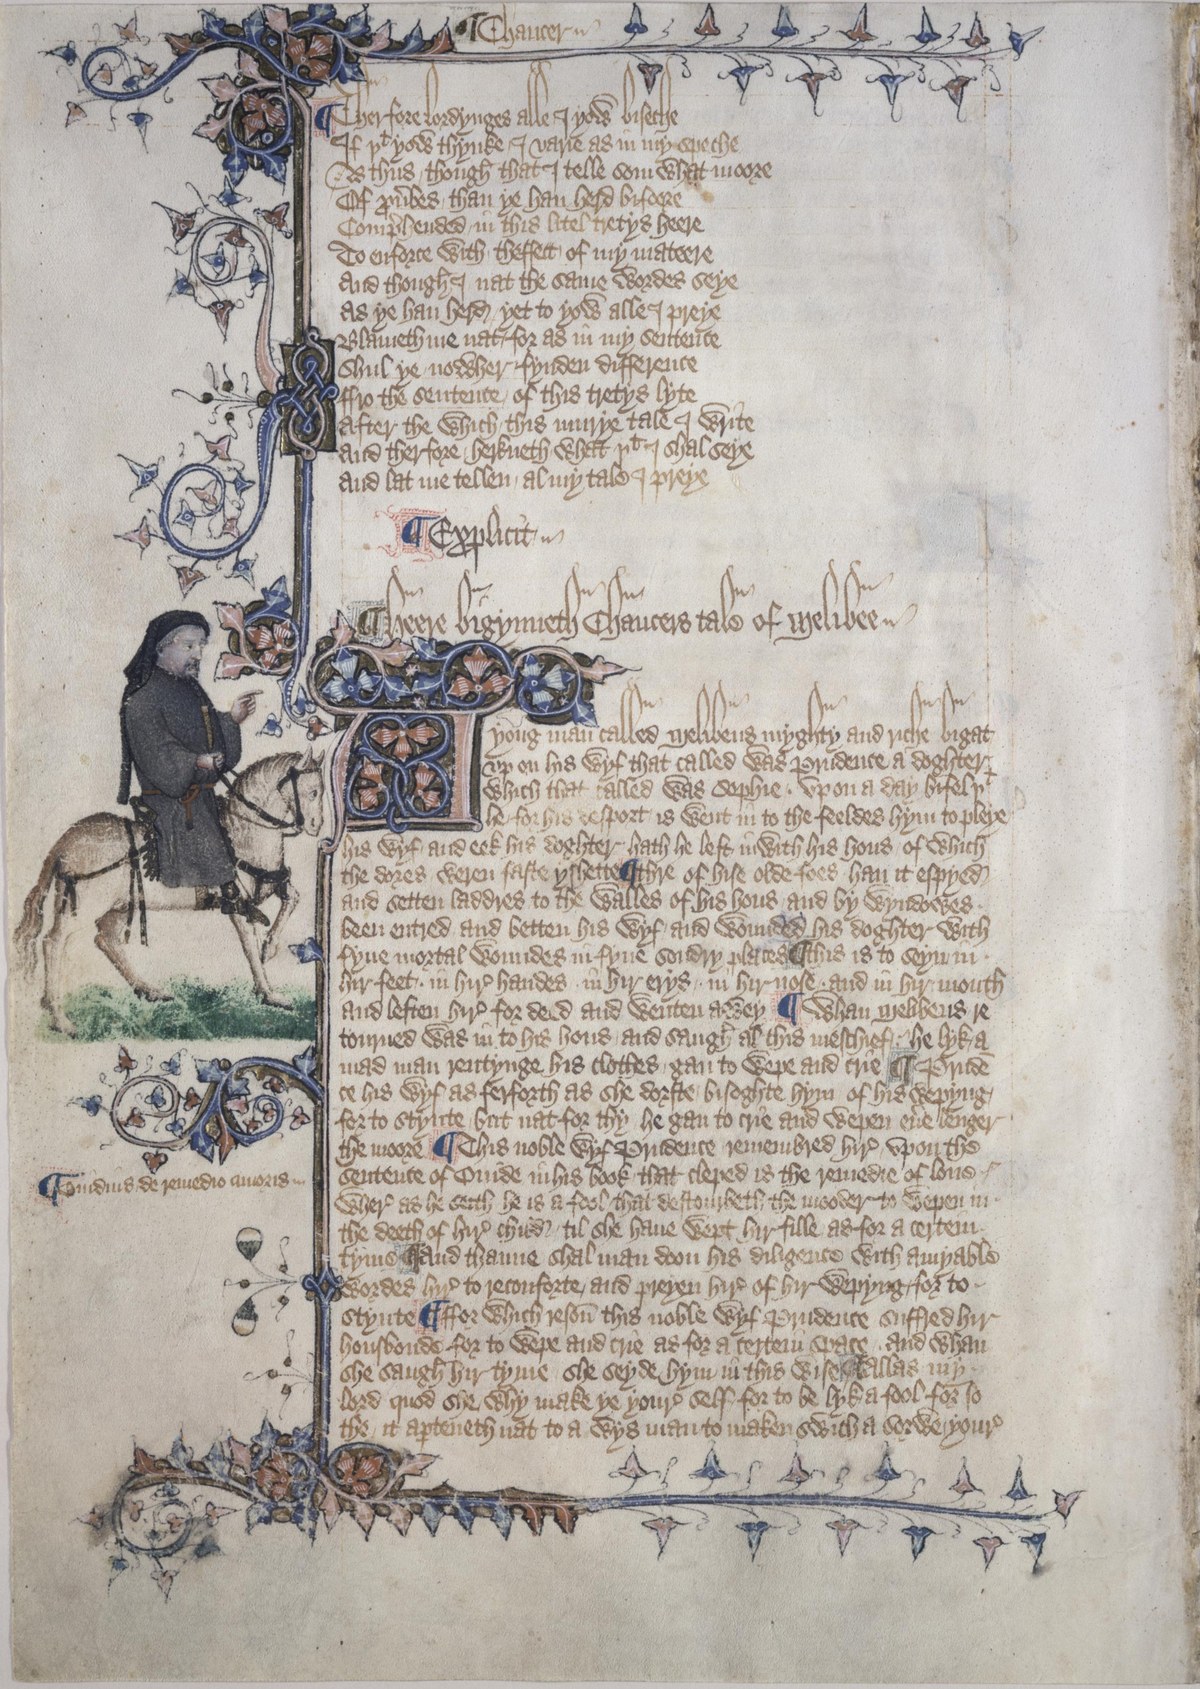 ¶ Chaucer
¶ Therfore lordynges alle I yow biseche
If þt yow thynke I varie as in my speche
As thus though that I telle som what moore
Of prouerbes than ye han herd bifoore
Comprehended in this litel tretys heere
To enforce with theffect of my mateere
And though I nat the same wordes seye
As ye han herd yet to yow alle I preye
Blameth me nat for as in my sentence
Shul ye nowher fynden difference
ffro the sentence of this tretys lyte
After the which this murye tale I write
And therfore herkneth what þt I shal seye
And lat me tellen al my tale I preye
¶ Explicit
¶ Heere bigynneth Chaucers tale of Melibee
A yong man called Melibeus myghty and riche bigat
vp on his wyf that called was Prudence a doghter
which that called was Sophie . vpon a day bifel þt
he for his desport is went in to the feeldes hym to pleye
his wyf and eek his doghter hath he left inwith his hous of which
the dores weren faste yshette ¶ thre of hise olde foes han it espyed
and setten laddres to the walles of his hous and by wyndowes
been entred and betten his wyf and wounded his doghter with
fyue mortal woundes in fyue sondry places ¶ this is to seyn in
hir feet . in hir handes . in hir erys . in hir nose . and in hir mouth
and leften hir for deed and wenten awey ¶ Whan Melibeus re
tourned was in to his hous and saugh al this meschief he lyk a
mad man rentynge his clothes gan to wepe and crie ¶ Pruden
ce his wyf as ferforth as she dorste bisoghte hym of his wepyng
for to stynte but nat for thy he gan to crie and wepen euer lenger
the moore ¶ This noble wyf Prudence remembred hir vpon the
sentence of Ouide in his book that cleped is the remedie of loue
¶ Ouidius de remedio amoris
Wher as he seith he is a fool that destourbeth the mooder to wepen in
the deeth of hir child til she haue wept hir fille as for a certein
tyme ¶ And thanne shal man doon his diligence with amyable
wordes hir to reconforte and preyen hir of hir wepyng for to
stynte ¶ ffor which reson this noble wyf Prudence suffred hir
housbonde for to wepe and crie as for a certein space . and whan
she saugh hir tyme she seyde hym in this wise ¶ Allas my
lord quod she why make ye your self for to be lyk a fool for so
the it aperteneth nat to a wys man to maken swich a sorwe your